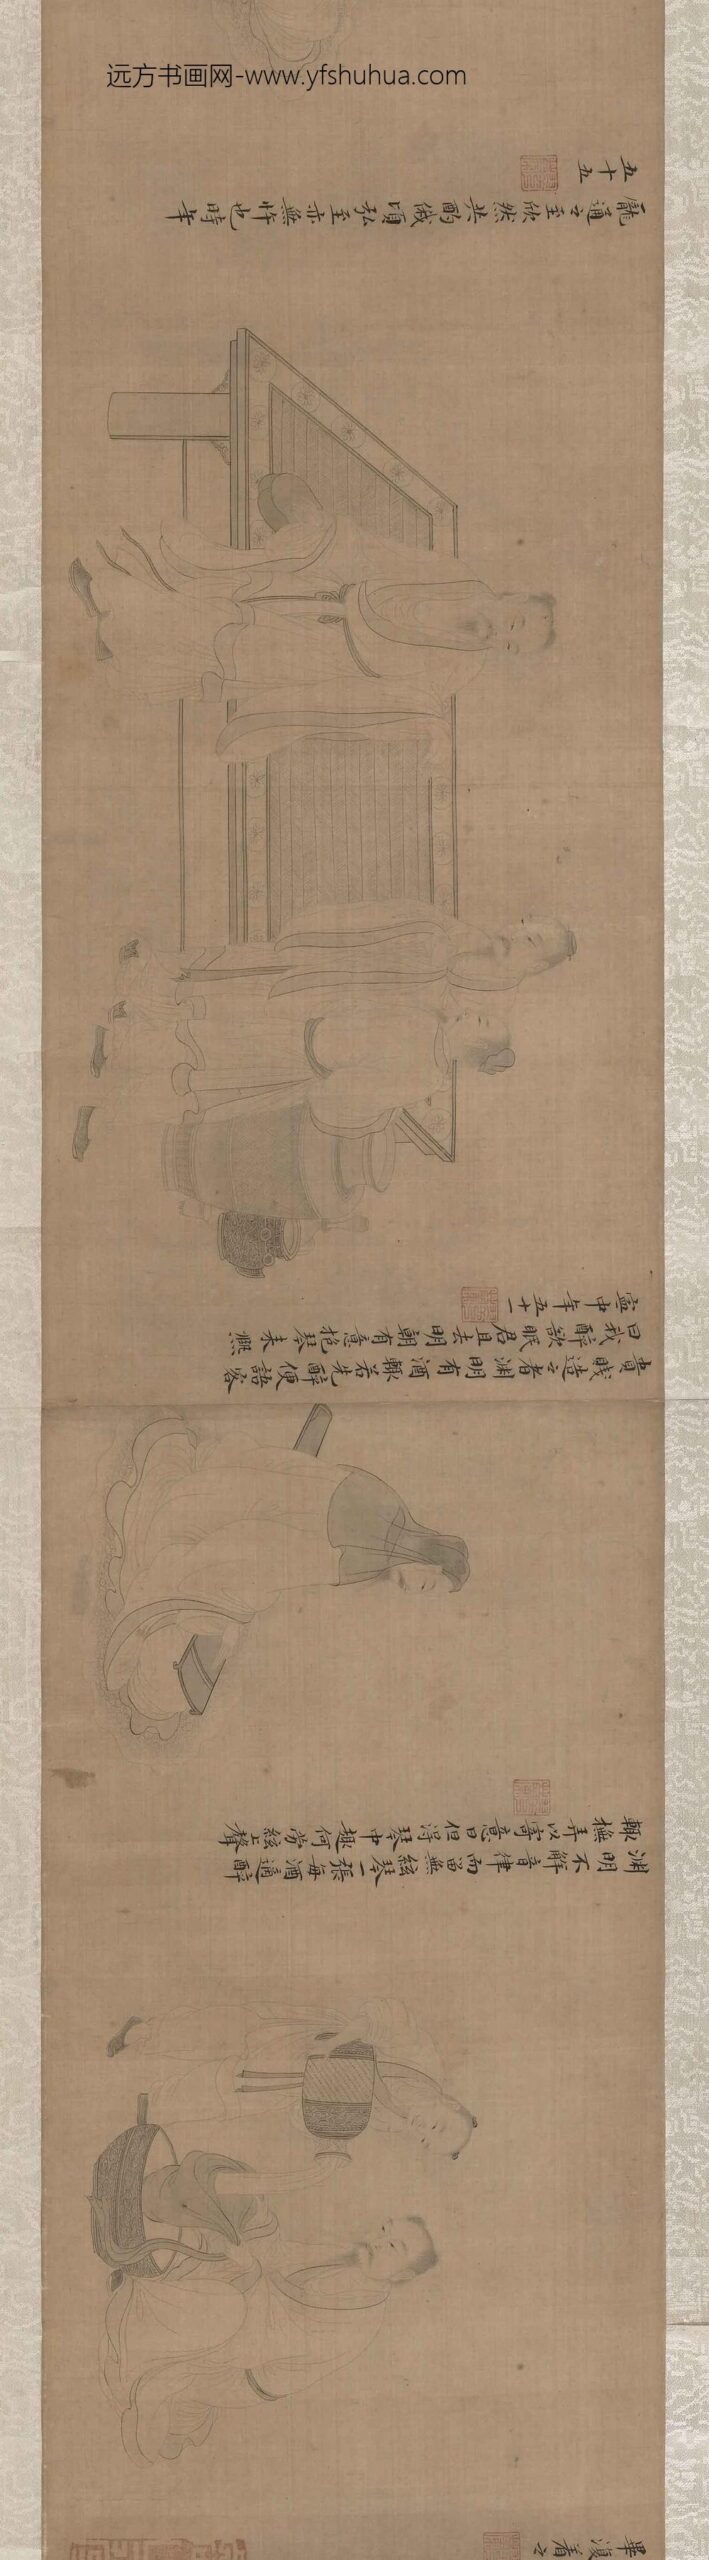 远方书画网-www.yfshuhua.com
畢復着之
淵明不解音律而畜無絃琴一張每酒適醉
輒撫弄以寄意曰但得琴中趣何勞絃上聲
貴賤造之者淵明有酒輒若先醉便語客
曰我醉欲眠君且去明朝有意抱琴来熈
寧中年五十一
龐通之至欣然共酌俄頃弘至亦無忤也時年
五十五